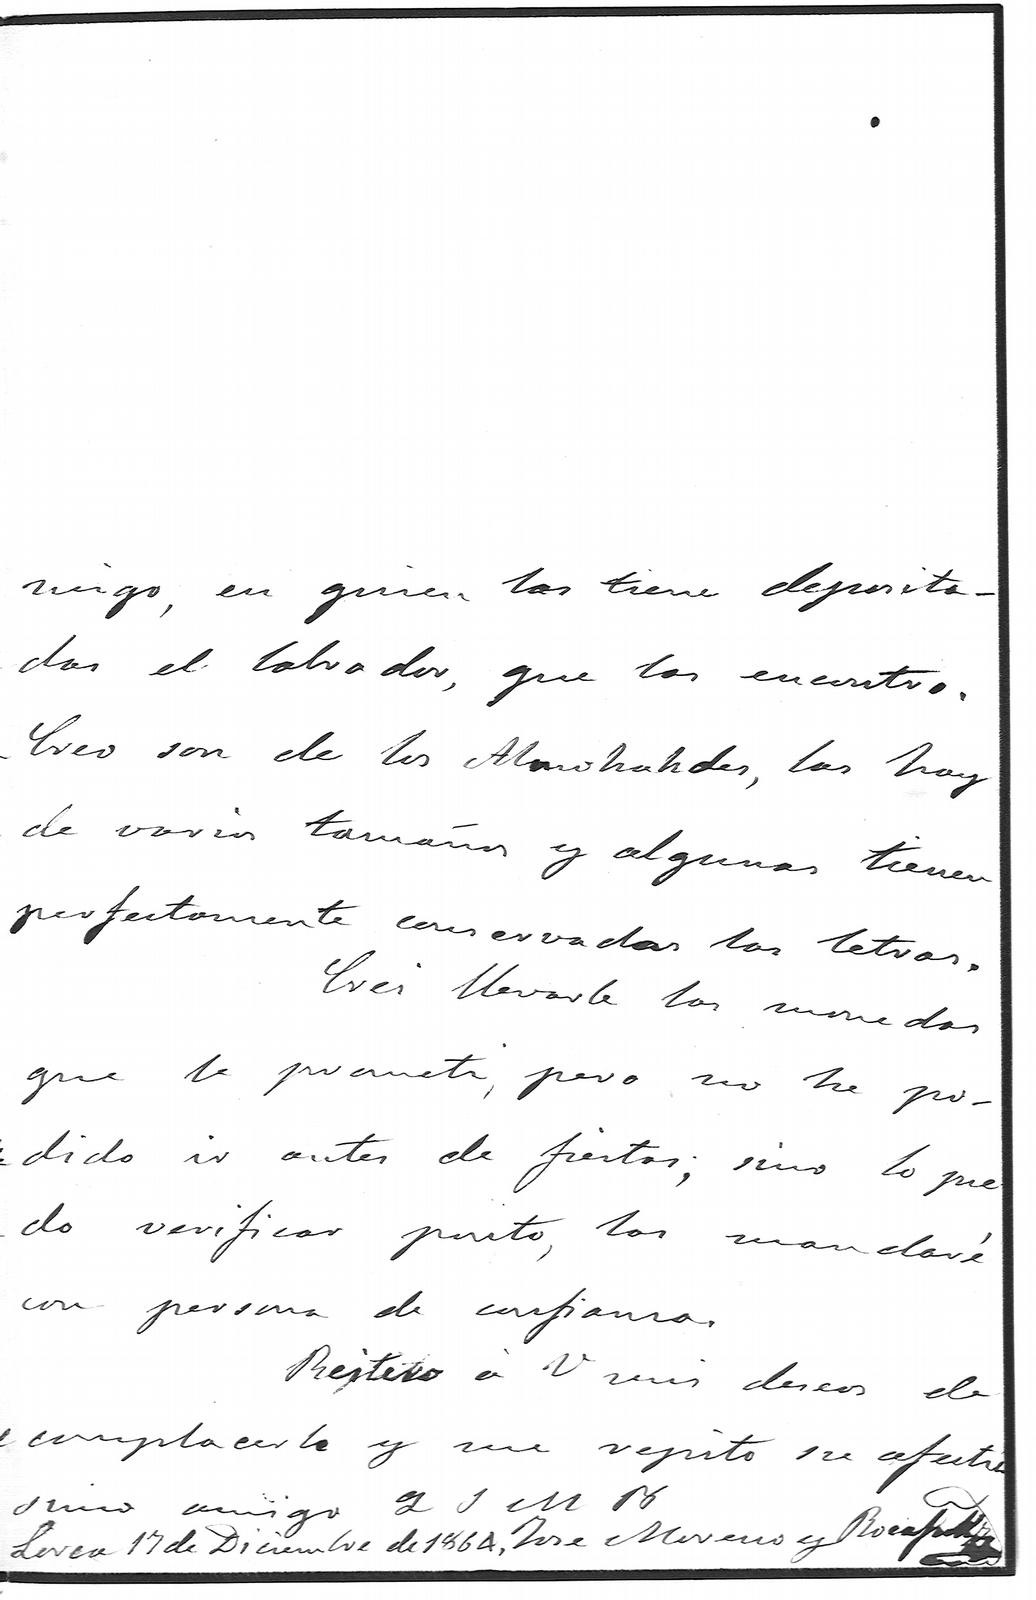 migo, en quien las tiene deposita-
das el labrador, que las encontro.
Creo son de los Almohahdes, las hay
de varios tamaños y algunas tienen
perfectamente conservadas las letras.
Crei llevarle las monedas
que le prometi, pero no he po-
dido ir antes de fiestas; sino lo pue
do verificar pronto, las mandaré
con persona de confianza.
Reitero á V mis deseos de
complacerle y me repito su afectí
simo amigo Q S M B
Lorca 17 de Diciembre de 1864, Jose Moreno y Rocafull